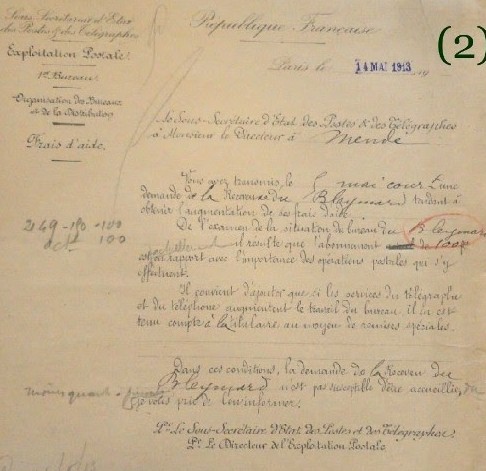 (2)
Sous-Secrétariat d'Etat
des Postes & des Télégraphes
République Française
Exploitation Postale
1er Bureau
Paris le 14 MAI 1913 19
Organisation des Bureaux
et de la Distribution
Frais d'aide.
Le Sous-Secrétaire d'Etat des Postes & des Télégraphes
à Monsieur le Directeur à Mende
Vous avez transmis, le 5 mai courant une
demande de la Receveuse du Bleymard tendant à
obtenir l'augmentation de ses frais d'aide.
De l'examen de la situation du bureau du Bleymard
il résulte que l'abonnement
est en rapport avec l'importance des opérations postales qui s'y
effectuent.
Il convient d'ajouter que si les services du télégraphe
et du téléphone augmentent le travail du bureau, il en est
tenu compte à la titulaire au moyen de remises spéciales.
Dans ces conditions, la demande de la Receveuse du
Bleymard n'est pas susceptible d'être accueillie,
je vous prie de l'en informer.
Pr. Le Sous-Secrétaire d'Etat des Postes et des Télégraphes
Pr. Le Directeur de l'Exploitation Postale